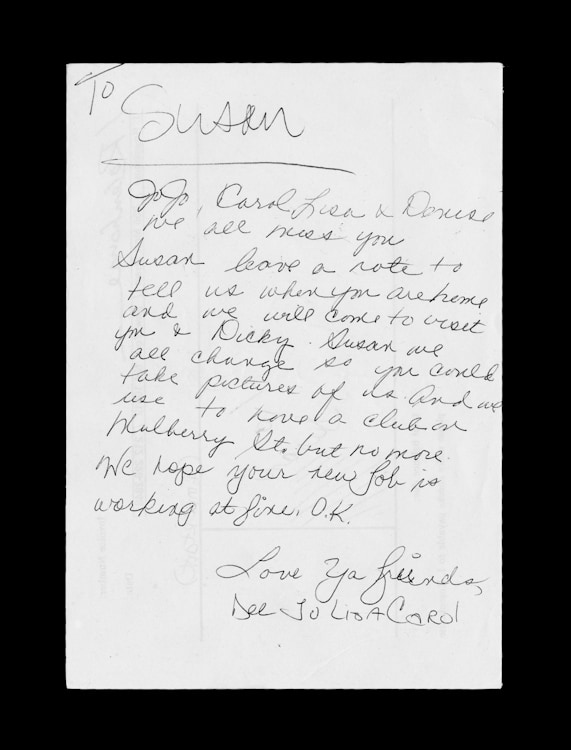 To
Susan
JoJo, Carol, Lisa & Denise
we all miss you
Susan leave a note to
tell us when you are home
and we will come to visit
you & Dicky. Susan we
all change so you could
take pictures of us. And we
use to have a club on
Mulberry St. but no more.
We hope your new job is
working at fine. O.K.
Love Ya friends,
Dee JO LISA CAROL